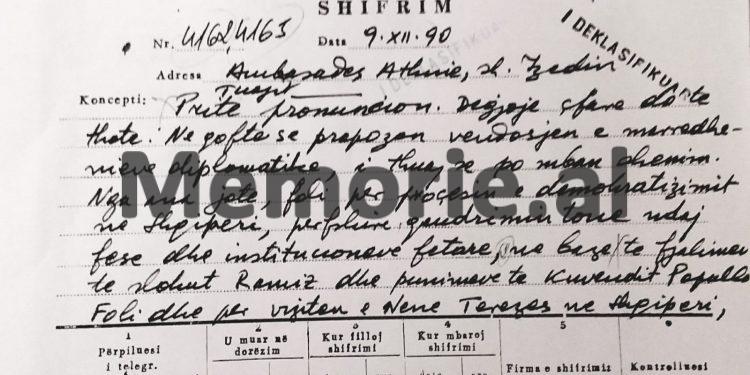 SHIFRIM
Nr. 4162,4163 Data 9.XII.90
I DEKLASIFIKUAR
I DEKLASIFIKUAR
Adresa Ambasades Athine, sh.
Koncepti: Prite pronuncion. Degjoje çfare do te
thote. Ne qofte se propozon vendosjen e marredhe-
nieve diplomatike, i thuaj se po mban shenim.
Nga ana jote, foli per procesin e demokratizimit
ne Shqiperi, perfshire qendrimin tone ndaj
fese dhe institucioneve fetare, ne baze te fjalimev
te shokut Ramiz dhe punimeve te Kuvendit Popullo
Foli dhe per viziten e Nene Terezes ne Shqiperi,
Memorie.al
1 2 3 4 5
Përpiluesi i telegr. U muar në dorëzim Kur filloj shifrimi Kur mbaroj shifrimi Firma e shifrimiz Kontrolluesi